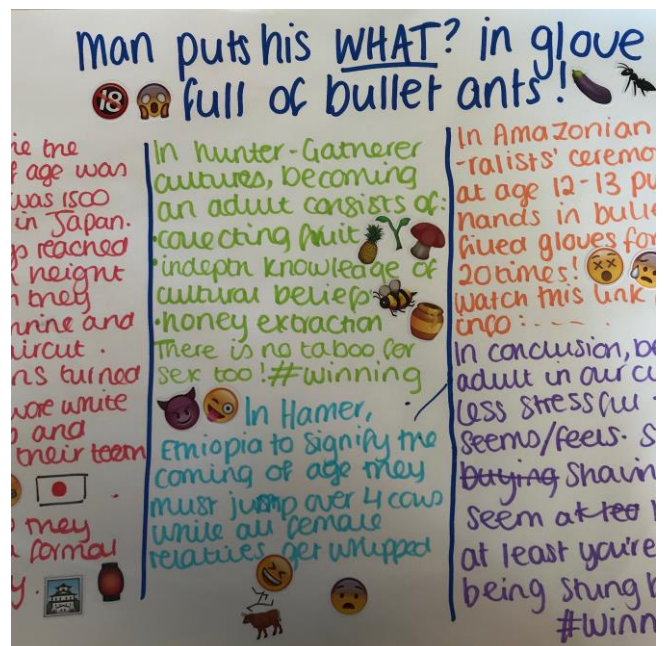 man puts his WHAT? in glove
18
full of bullet ants!
the
age was
was 1500
in Japan.
reached
height
they
and
.
turned
wore white
and
their teeth
they
formal
In hunter-Gatherer
cultures, becoming
an adult consists of:
·collecting fruit
·indepth knowledge of
cultural beliefs
·honey extraction
There is no taboo for
sex too! #winning
In Hamer,
Ethiopia to signify the
coming of age they
must jump over 4 cows
while all female
relatives get whipped
In Amazonian
-ralists' ceremo
at age 12-13 pu
hands in bulle
filled gloves for
20times!
Watch this link
info:----
In conclusion, be
adult in our cu
less stressful
seems/feels. S
buying Shavin
seem
at least you're
being stung b
#winn